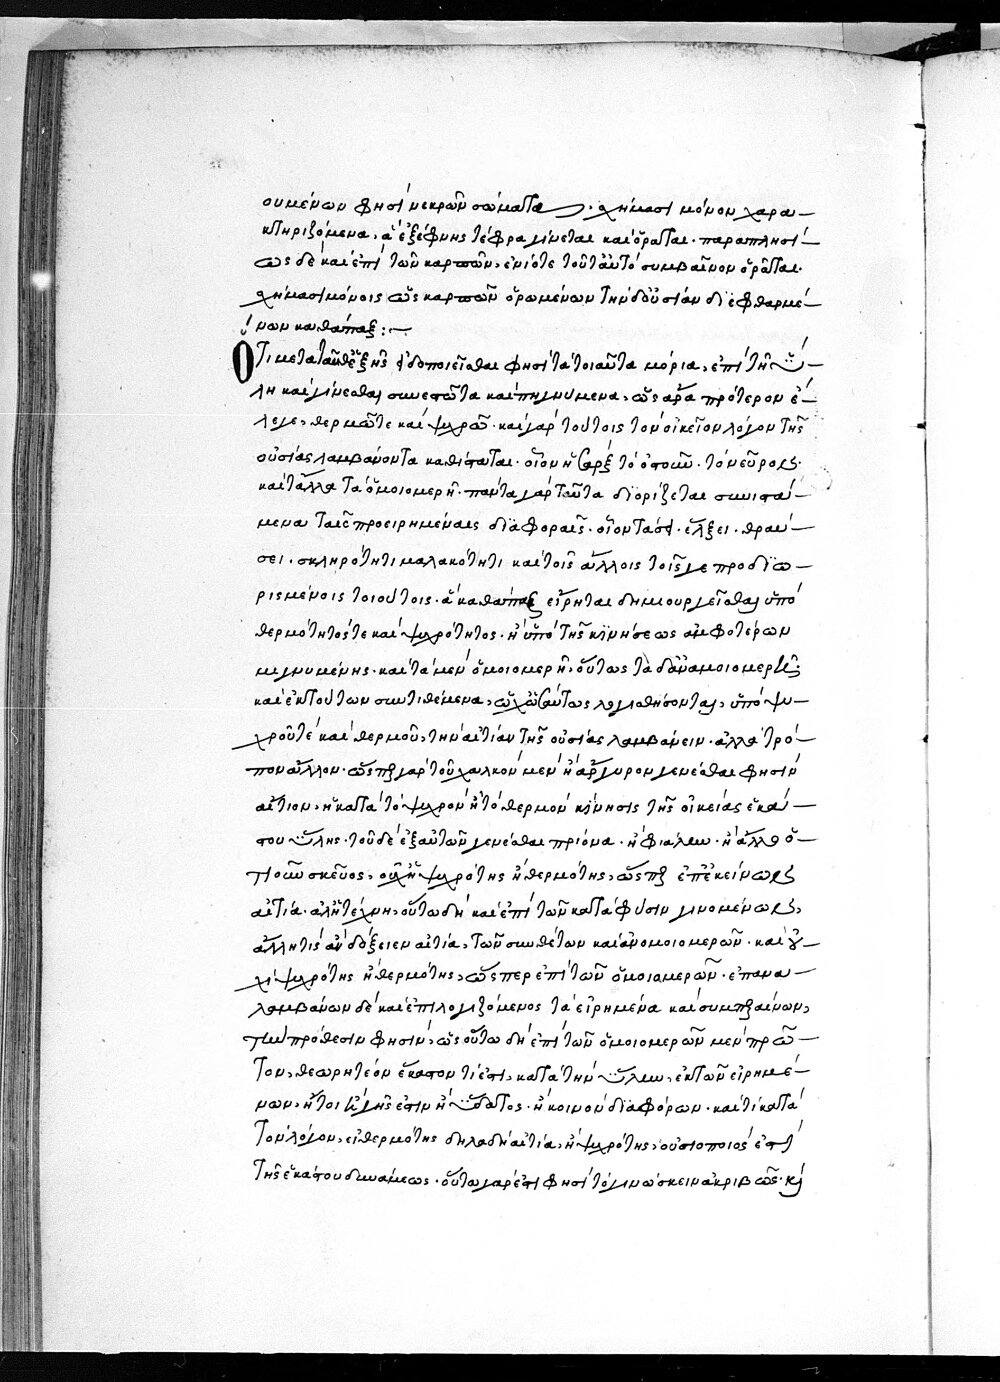 ουμένων φησὶ νεκρῶν σώματα, σχήμασι μόνον χαρα-
κτηριζόμενα, ἃ ἐξαίφνης τέφρα γίνεται καὶ ὁρᾶται. παραπλησί-
ως δὲ καὶ ἐπὶ τῶν καρπῶν, ἐνίοτε τοῦτ' αὐτὸ συμβαῖνον ὁρᾶται.
σχήμασι μόνοις ὡς καρπῶν ὁρωμένων τὴν δ' οὐσίαν διεφθαρμέ-
νων καθάπαξ:~
Ὅτι μετὰ ταῦθ' ἑξῆς ὁδοποιεῖσθαι φησὶ τὰ τοιαῦτα μόρια, ἐπὶ τῇ ὕ-
λῃ καὶ γίνεσθαι συνεστῶτα καὶ πηγνύμενα, ὡς ἄρα πρότερον ἔ-
λεγε, θερμῶ τε καὶ ψυχρῶ. καὶ γὰρ τούτοις τὸν οἰκεῖον λόγον τῆς
οὐσίας λαμβάνοντα καθίσταται. οἷον ἡ σαρξ τὸ ὀστοῦν. τὸ νεῦρον.
καὶ τἄλλα τὰ ὁμοιομερῆ. πάντα γὰρ ταῦτα διορίζεται συνιστά-
μενα ταῖς προειρημέναις διαφοραῖς. οἷον τάσει. ἕλξει. θραύ-
σει. σκληρότητι μαλακότητι καὶ τοῖς ἄλλοις τοῖς γε προδιω-
ρισμένοις τοιούτοις. ἃ καθάπαξ εἴρηται δημιουργεῖσθαι ὑπὸ
θερμότητός τε καὶ ψυχρότητος. ἢ ὑπὸ τῆς κινήσεως ἀμφοτέρων
μιγνυμένης. καὶ τὰ μὲν ὁμοιομερῆ, οὕτως τὰ δ' ἀνομοιομερῆ
καὶ ἐκ τούτων συντιθέμενα, οὐχ ὡσαύτως λογισθήσονται, ὑπὸ ψυ-
χροῦ τε καὶ θερμοῦ, τὴν αἰτίαν τῆς οὐσίας λαμβάνειν. ἀλλὰ τρό-
πον ἄλλον. ὥσπερ γὰρ τοῦ χαλκὸν μὲν ἢ ἄργυρον γενέσθαι φησὶν
αἴτιον, ἡ κατὰ τὸ ψυχρὸν ἢ τὸ θερμὸν κίνησις τῆς οἰκείας ἑκάσ-
του ὕλης. τοῦ δὲ ἐξ αὐτῶν γενέσθαι πρίονα. ἢ φιάλην. ἢ ἄλλο ὁ-
τιοῦν σκεῦος, οὐχὶ ἡ ψυχρότης ἢ θερμότης, ὥσπερ ἐπ' ἐκείνων
αἰτία. ἀλλ' ἡ τέχνη, οὕτω δὴ καὶ ἐπὶ τῶν κατὰ φύσιν γινομένων,
ἄλλη τις ἂν δόξειεν αἰτία, τῶν συνθέτων καὶ ἀνομοιομερῶν. καὶ οὐ-
χὶ ψυχρότης ἢ θερμότης, ὥσπερ ἐπὶ τῶν ὁμοιομερῶν. ἐπανα-
λαμβάνων δὲ καὶ ἐπιλογιζόμενος τὰ εἰρημένα καὶ συμπεραίνων,
τὴν πρόθεσιν φησίν, ὡς οὕτω δὴ ἐπὶ τῶν ὁμοιομερῶν μὲν πρῶ-
τον, θεωρητέον ἕκαστον τί ἐστι, κατὰ τὴν ὕλην, ἐκ τῶν εἰρημέ-
νων, ἤτοι γῆς ἐστιν ἢ ὕδατος. ἢ κοινὸν διαφόρων. καὶ τί κατὰ
τὸν λόγον, εἰ θερμότης δηλαδὴ αἰτία, ἢ ψυχρότης, οὐσιοποιός ἐστι
τῆς ἑκάστου δυνάμεως. οὕτω γὰρ ἐστι φησὶ τὸ γινώσκειν ἀκριβῶς. καὶ